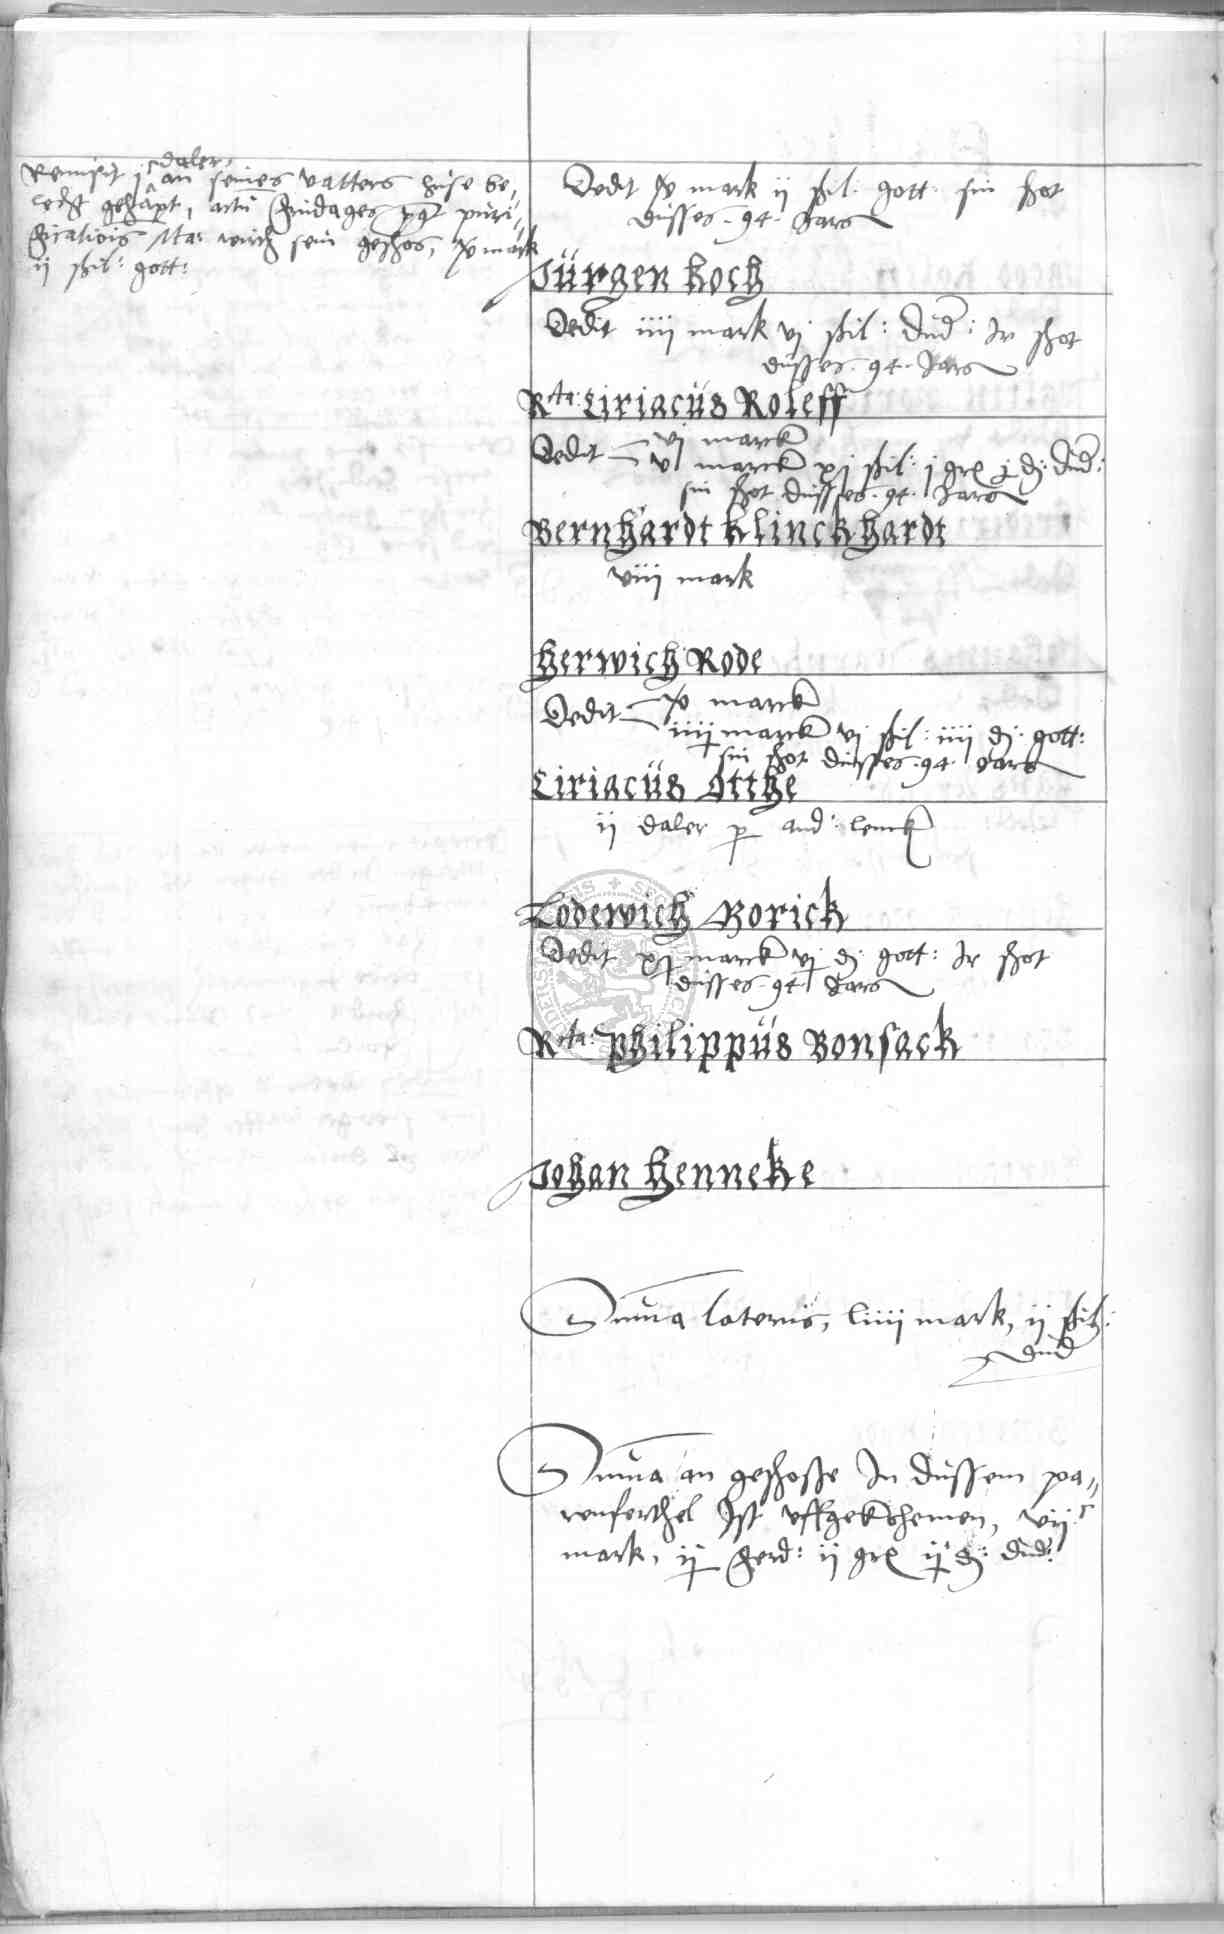 Remisit j c daler,
an seines vatters huse be,
lecht gehapt, actu fridages pgt puri,
ficatiois Ma: wirth sein geschos, xv mark
ij schil: gott:
Dedit xv mark ij schil: gott: sin schot
dusses .94. Jars
Jürgen Koch
Dedit iiij mark vj schil: Dud: Ir schot
dusses .94. Jars
Rcta: Ciriacüs Roleff
Dedit vj marck
v marck xj schil: j grs j d: dud:
sin schot dusses .94. Jars
Bernhardt Klinckhardt
viij mark
Herwich Rode
Dedit xv marck
iiij marck vj schil: iiij d: gott:
sin schot dusses .94. Jars
Ciriacüs Otthe
ij daler p and: lenck
Lodewich Borick
Dedit xj marck vj d: gott: Ir schot
dusses .94. Jars
Rcta: Philippüs Bonsack
Johan Henneke
Suma lateris, liiij mark, ij schil:
dud
Suma an geschosse In dussem pa,,
renferthel Ist uffgekohemen, vij c
mark, ij ferd: ij grs ij d: dud: